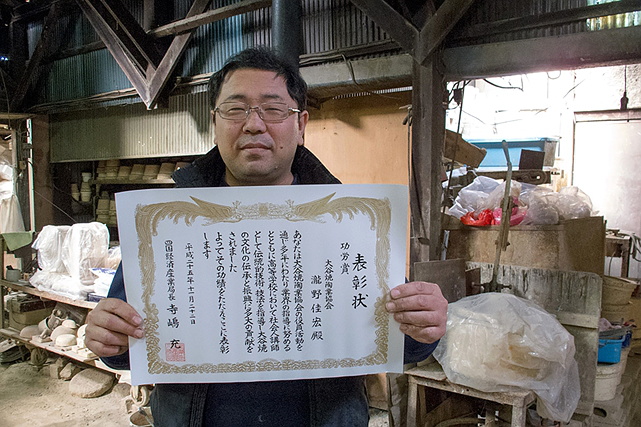 表彰状
功労賞
大谷焼陶業協会
瀧野佳宏殿
あなたは大谷焼陶業協会の役員活動を
通じ多年にわたり業界の指導に努める
とともに高等学校において社会人講師
として伝統的技術・技法を指導し大谷焼
の文化の伝承と振興に多大の貢献を
されました
よってその功績をたたえここに表彰
します
平成二十五年十一月二十二日
四国経済産業局長 寺嶋 充